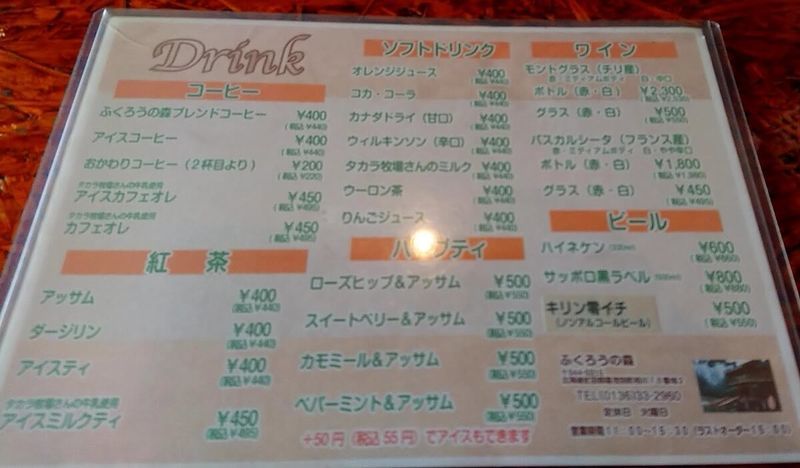 Drink
コーヒー
ふくろうの森ブレンドコーヒー ¥400
(税込¥440)
アイスコーヒー ¥400
(税込¥440)
おかわりコーヒー(2杯目より) ¥200
(税込¥220)
タカラ牧場さんの牛乳使用
アイスカフェオレ ¥450
(税込¥495)
タカラ牧場さんの牛乳使用
カフェオレ ¥450
(税込¥495)
紅 茶
アッサム ¥400
(税込¥440)
ダージリン ¥400
(税込¥440)
アイスティ ¥400
(税込¥440)
タカラ牧場さんの牛乳使用
アイスミルクティ ¥450
(税込¥495)
ソフトドリンク
オレンジジュース ¥400
(税込¥440)
コカ・コーラ ¥400
(税込¥440)
カナダドライ(甘口) ¥400
(税込¥440)
ウィルキンソン(辛口) ¥400
(税込¥440)
タカラ牧場さんのミルク ¥400
(税込¥440)
ウーロン茶 ¥400
(税込¥440)
りんごジュース ¥400
(税込¥440)
ハーブティ
ローズヒップ&アッサム ¥500
(税込¥550)
スイートベリー&アッサム ¥500
(税込¥550)
カモミール&アッサム ¥500
(税込¥550)
ペパーミント&アッサム ¥500
(税込¥550)
+50円(税込55円)でアイスもできます
ワイン
モントグラス(チリ産)
赤・ミディアムボディ 白・辛口
ボトル(赤・白) ¥2,300
(税込¥2,530)
グラス(赤・白) ¥500
(税込¥550)
パスカルシータ(フランス産)
赤・ミディアムボディ 白・やや辛口
ボトル(赤・白) ¥1,800
(税込¥1,980)
グラス(赤・白) ¥450
(税込¥495)
ビール
ハイネケン ¥600
(税込¥660)
サッポロ黒ラベル ¥800
(税込¥880)
キリン零イチ ¥500
(ノンアルコールビール) (税込¥550)
ふくろうの森
TEL(0136)33-2960
定休日 火曜日
営業時間11:00~15:30(ラストオーダー15:00)